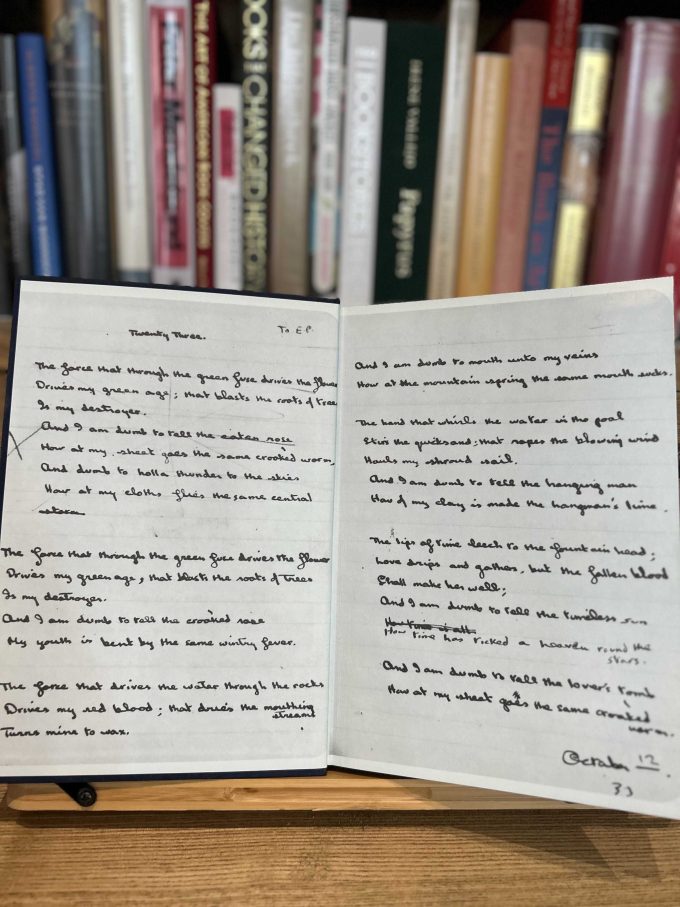 THE ART OF AMERICAN BOOK COVERS
BOOKS THAT CHANGED HISTORY
IRENE VALLEJO Papyrus
Twenty Three.
To E.P.
The force that through the green fuse drives the flower
Drives my green age; that blasts the roots of tree
Is my destroyer.
And I am dumb to tell the eaten rose
How at my sheet goes the same crooked worm,
And dumb to holla thunder to the skies
How at my cloths flies the same central
storm
The force that through the green fuse drives the flower
Drives my green age, that blasts the roots of trees
Is my destroyer.
And I am dumb to tell the crooked rose
My youth is bent by the same wintry fever.
The force that drives the water through the rocks
Drives my red blood; that dries the mouthing
streams
Turns mine to wax.
And I am dumb to mouth unto my veins
How at the mountain spring the same mouth sucks.
The hand that whirls the water in the pool
Stirs the quicksand; that ropes the blowing wind
Hauls my shroud sail.
And I am dumb to tell the hanging man
How of my clay is made the hangman's lime.
The lips of time leech to the fountain head;
Love drips and gathers, but the fallen blood
Shall make her well;
And I am dumb to tell the timeless sun
How time is all.
How time has ticked a heaven round the
stars.
And I am dumb to tell the lover's tomb
How at my sheet goes the same crooked
worm.
October 12
33